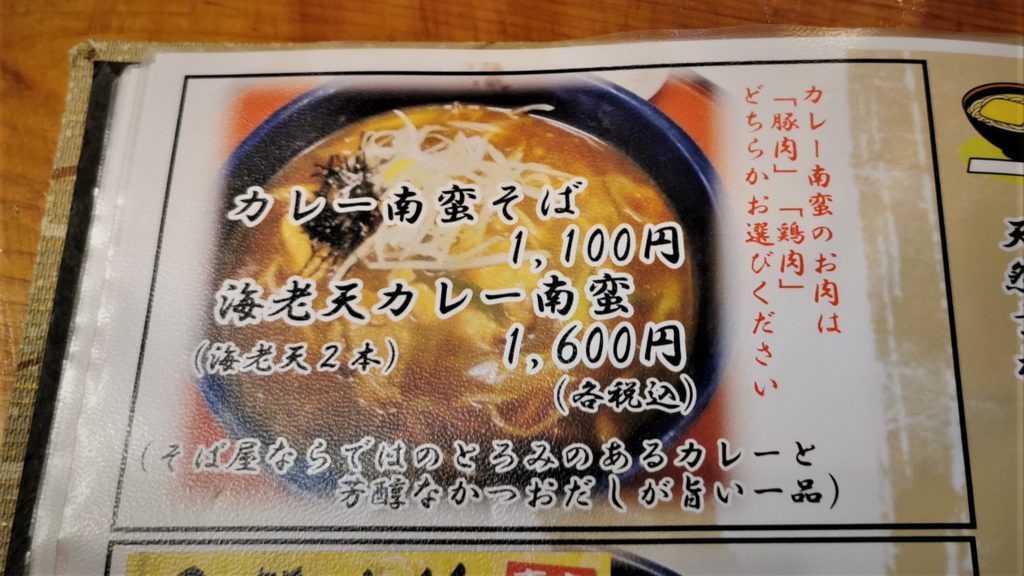 カレー南蛮そば
1,100円
海老天カレー南蛮
(海老天2本) 1,600円
(各税込)
(そば屋ならではのとろみのあるカレーと
芳醇なかつおだしが旨い一品)
カレー南蛮のお肉は
「豚肉」「鶏肉」
どちらかお選びください